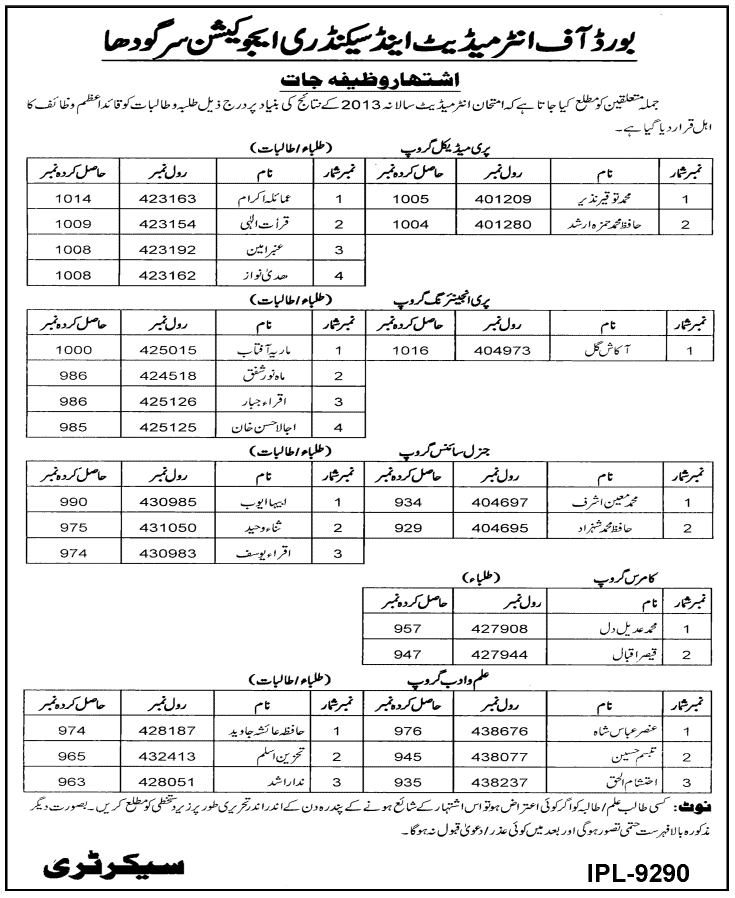 بورڈ آف انٹرمیڈیٹ اینڈ سیکنڈری ایجوکیشن سرگودھا
اشتہار وظیفہ جات
جملہ متعلقین کو مطلع کیا جاتا ہے کہ امتحان انٹرمیڈیٹ سالانہ 2013 کے نتائج کی بنیاد پر درج ذیل طلبہ و طالبات کو قائد اعظم وظائف کا
اہل قرار دیا گیا ہے۔
پری میڈیکل گروپ (طلباء/طالبات)
نمبر شمار نام رول نمبر حاصل کردہ نمبر نمبر شمار نام رول نمبر حاصل کردہ نمبر
1 محمد توقیر نذیر 401209 1005 1 عمائلہ اکرام 423163 1014
2 حافظ محمد حمزہ ارشد 401280 1004 2 قرأت الٰہی 423154 1009
3 عنبر امین 423192 1008
4 ھدیٰ نواز 423162 1008
پری انجینئرنگ گروپ (طلباء/طالبات)
نمبر شمار نام رول نمبر حاصل کردہ نمبر نمبر شمار نام رول نمبر حاصل کردہ نمبر
1 آکاش گل 404973 1016 1 ماریہ آفتاب 425015 1000
2 ماہ نور شفق 424518 986
3 اقراء جبار 425126 986
4 اجالا حسن خان 425125 985
جنرل سائنس گروپ (طلباء/طالبات)
نمبر شمار نام رول نمبر حاصل کردہ نمبر نمبر شمار نام رول نمبر حاصل کردہ نمبر
1 محمد معین اشرف 404697 934 1 ابیہا ایوب 430985 990
2 حافظ محمد شہزاد 404695 929 2 ثناء وحید 431050 975
3 اقراء یوسف 430983 974
کامرس گروپ (طلباء)
نمبر شمار نام رول نمبر حاصل کردہ نمبر
1 محمد عدیل دل 427908 957
2 قیصر اقبال 427944 947
علم و ادب گروپ (طلباء/طالبات)
نمبر شمار نام رول نمبر حاصل کردہ نمبر نمبر شمار نام رول نمبر حاصل کردہ نمبر
1 عنصر عباس شاہ 438676 976 1 حافظہ عائشہ جاوید 428187 974
2 تبسم حسین 438077 945 2 تحزین اسلم 432413 965
3 احتشام الحق 438237 935 3 ندا راشد 428051 963
نوٹ: کسی طالب علم/طالبہ کو اگر کوئی اعتراض ہو تو اس اشتہار کے شائع ہونے کے پندرہ دن کے اندر اندر تحریری طور پر زیر دستخطی کو مطلع کریں۔ بصورت دیگر
مذکورہ بالا فہرست حتمی تصور ہوگی اور بعد میں کوئی عذر/دعویٰ قبول نہ ہوگا۔
سیکرٹری
IPL-9290